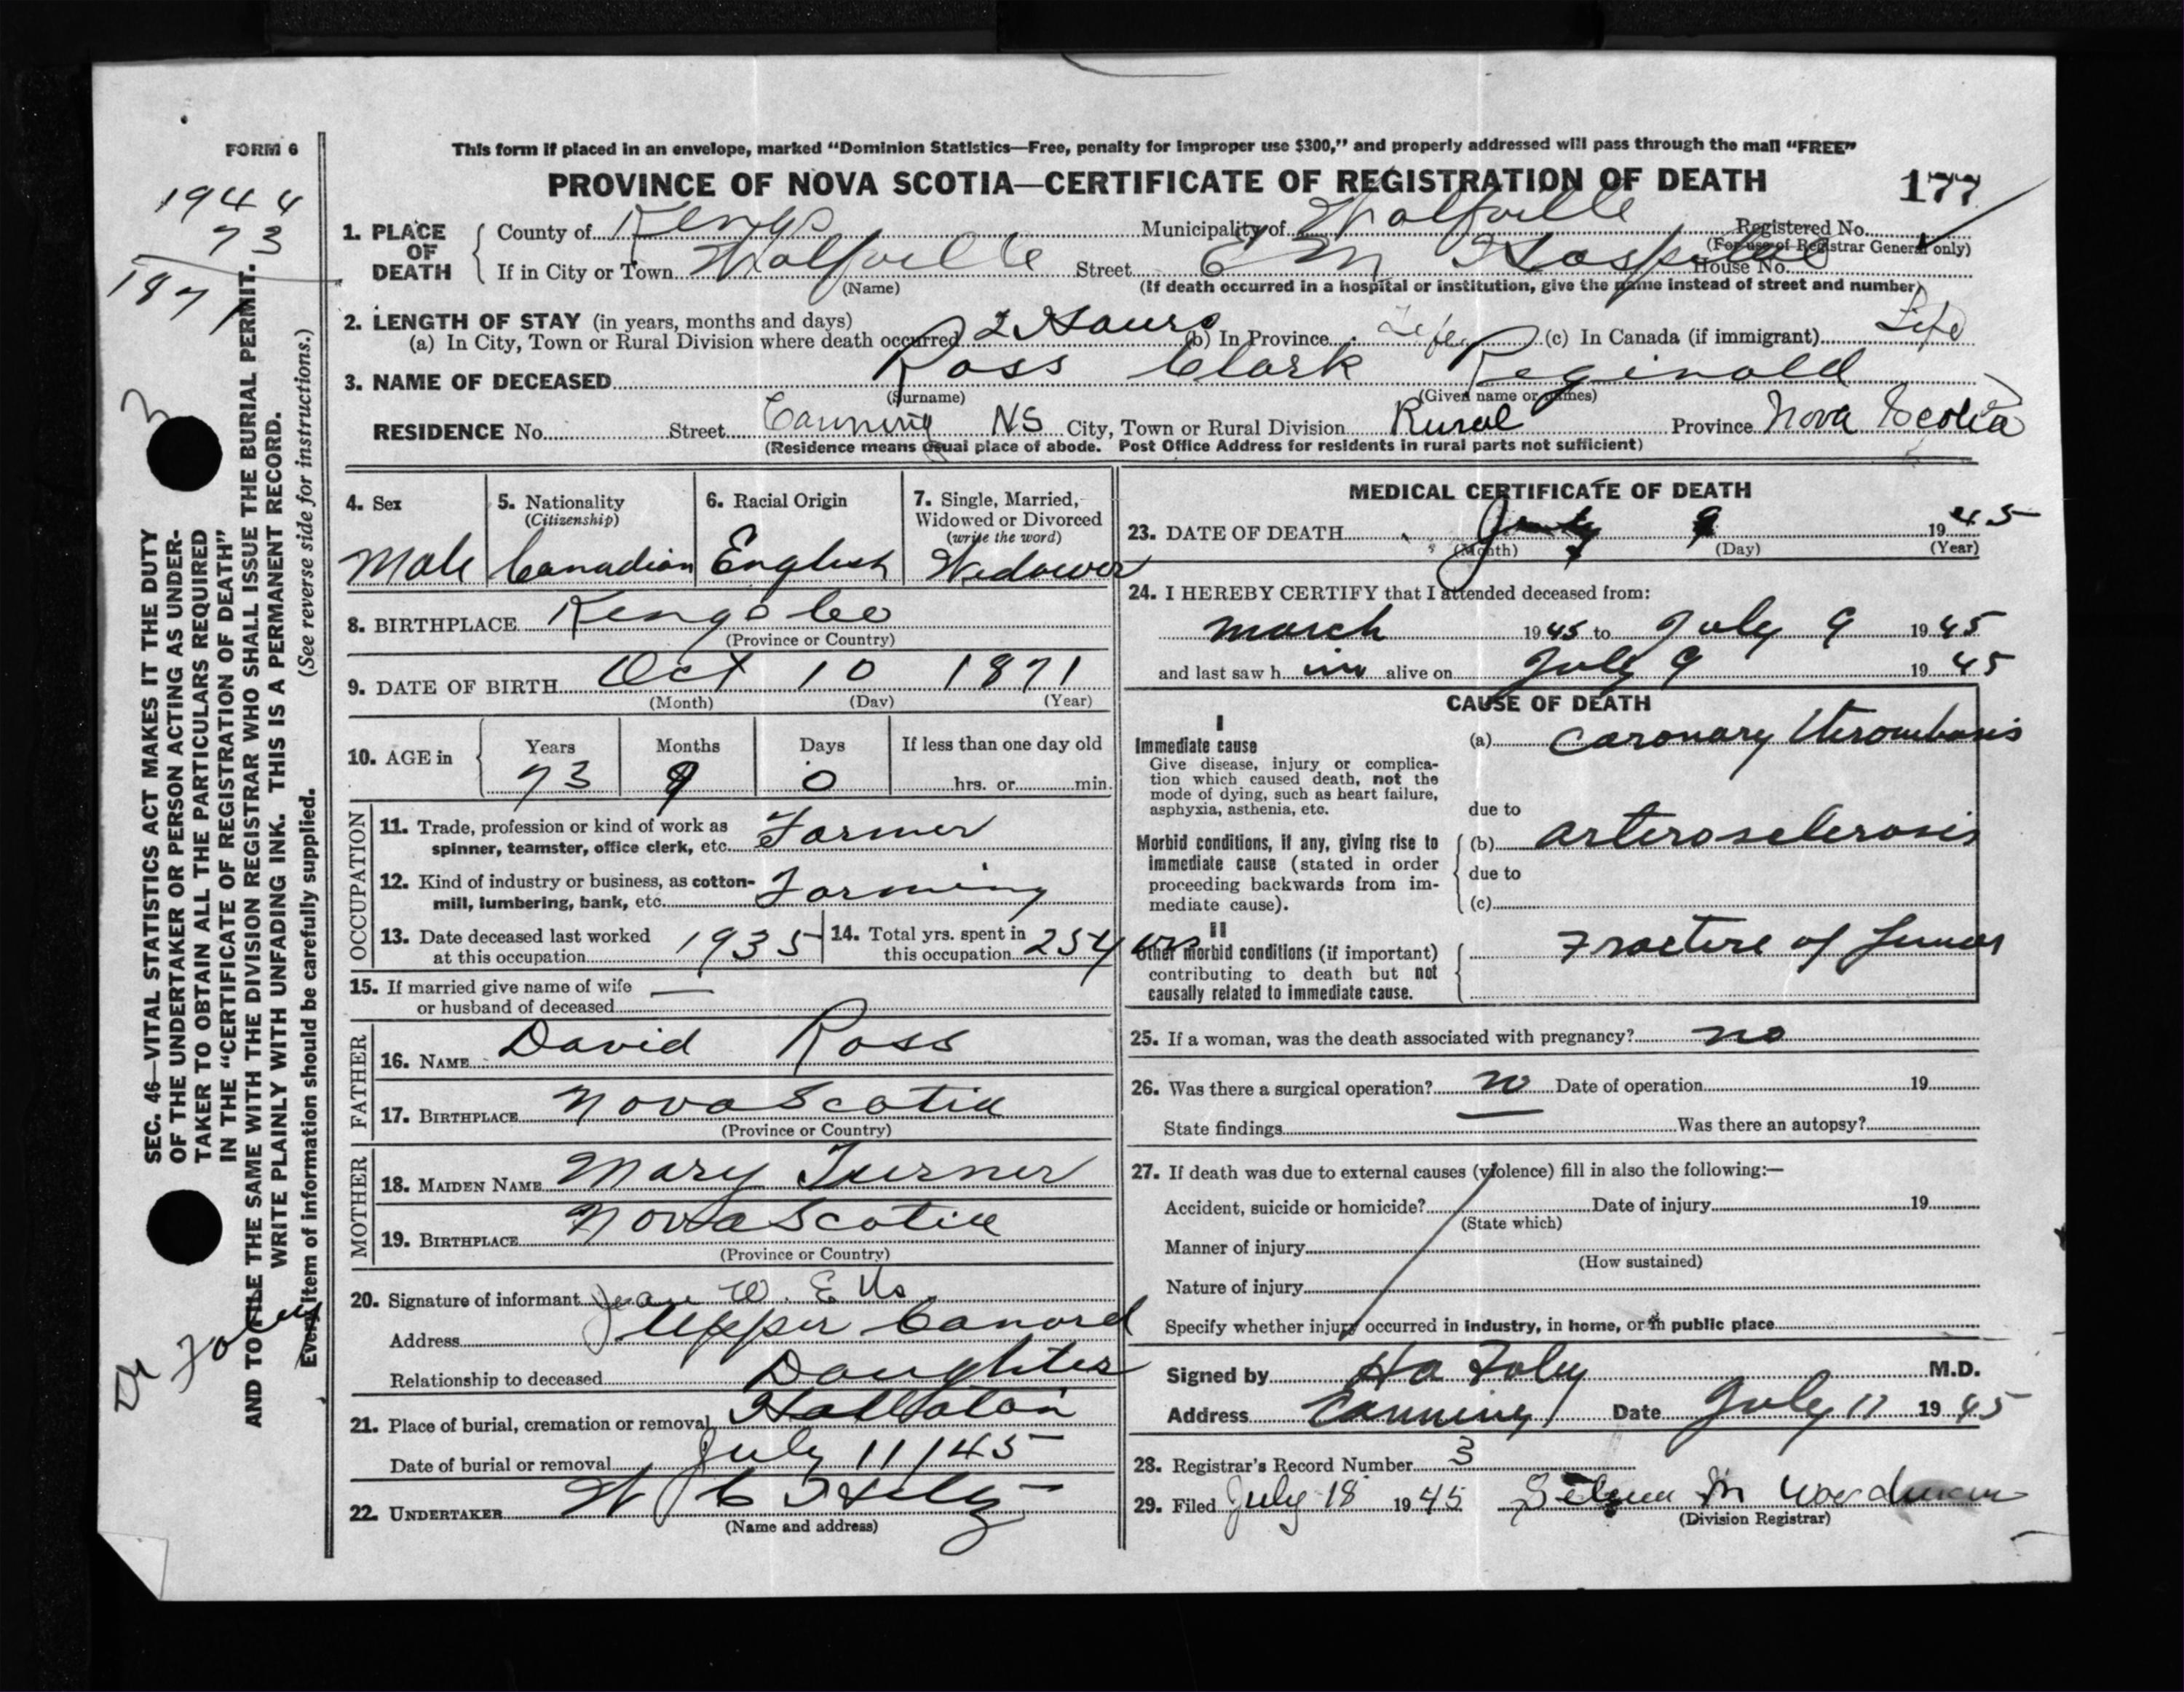 FORM 6
This form if placed in an envelope, marked “Dominion Statistics—Free, penalty for improper use $300,” and properly addressed will pass through the mail “FREE”
PROVINCE OF NOVA SCOTIA—CERTIFICATE OF REGISTRATION OF DEATH
177
1944
73
1871
3
SEC. 46—VITAL STATISTICS ACT MAKES IT THE DUTY
OF THE UNDERTAKER OR PERSON ACTING AS UNDER-
TAKER TO OBTAIN ALL THE PARTICULARS REQUIRED
IN THE “CERTIFICATE OF REGISTRATION OF DEATH”
AND TO FILE THE SAME WITH THE DIVISION REGISTRAR WHO SHALL ISSUE THE BURIAL PERMIT.
WRITE PLAINLY WITH UNFADING INK. THIS IS A PERMANENT RECORD.
Every item of information should be carefully supplied. (See reverse side for instructions.)
1. PLACE OF DEATH
County of Kings Municipality of Wolfville Registered No.
(For use of Registrar General only)
If in City or Town Wolfville Street E M Hospital House No.
(Name) (If death occurred in a hospital or institution, give the name instead of street and number)
2. LENGTH OF STAY (in years, months and days)
(a) In City, Town or Rural Division where death occurred 2 Hours (b) In Province Life (c) In Canada (if immigrant) Life
3. NAME OF DECEASED Ross Clark Reginald
(Surname) (Given name or names)
RESIDENCE No. Street Canning NS City, Town or Rural Division Rural Province Nova Scotia
(Residence means usual place of abode. Post Office Address for residents in rural parts not sufficient)
4. Sex
Male
5. Nationality
(Citizenship)
Canadian
6. Racial Origin
English
7. Single, Married,
Widowed or Divorced
(write the word)
Widower
8. BIRTHPLACE Kings Co
(Province or Country)
9. DATE OF BIRTH Oct 10 1871
(Month) (Day) (Year)
10. AGE in
Years Months Days If less than one day old
73 9 0 hrs. or min.
OCCUPATION
11. Trade, profession or kind of work as
spinner, teamster, office clerk, etc. Farmer
12. Kind of industry or business, as cotton-
mill, lumbering, bank, etc. Farming
13. Date deceased last worked
at this occupation 1935
14. Total yrs. spent in
this occupation
15. If married give name of wife —
or husband of deceased
FATHER
16. NAME David Ross
17. BIRTHPLACE Nova Scotia
(Province or Country)
MOTHER
18. MAIDEN NAME Mary Turner
19. BIRTHPLACE Nova Scotia
(Province or Country)
20. Signature of informant Jean W. Ells
Address Upper Canard
Relationship to deceased Daughter
21. Place of burial, cremation or removal
Date of burial or removal July 11/45
22. UNDERTAKER W C
(Name and address)
MEDICAL CERTIFICATE OF DEATH
23. DATE OF DEATH July 9 1945
(Month) (Day) (Year)
24. I HEREBY CERTIFY that I attended deceased from:
March 1945 to July 9 1945
and last saw h im alive on July 9 1945
CAUSE OF DEATH
I
Immediate cause
Give disease, injury or complica-
tion which caused death, not the
mode of dying, such as heart failure,
asphyxia, asthenia, etc.
(a) Coronary thrombosis
due to
Morbid conditions, if any, giving rise to
immediate cause (stated in order
proceeding backwards from im-
mediate cause).
(b) arterosclerosis
due to
(c)
II
Other morbid conditions (if important)
contributing to death but not
causally related to immediate cause.
Fracture of femur
25. If a woman, was the death associated with pregnancy? no
26. Was there a surgical operation? no Date of operation 19
State findings Was there an autopsy?
27. If death was due to external causes (violence) fill in also the following:—
Accident, suicide or homicide? Date of injury 19
(State which)
Manner of injury
(How sustained)
Nature of injury
Specify whether injury occurred in industry, in home, or in public place
Signed by Foley M.D.
Address Canning Date July 11 1945
28. Registrar's Record Number 3
29. Filed July 18 1945 M Woodman
(Division Registrar)